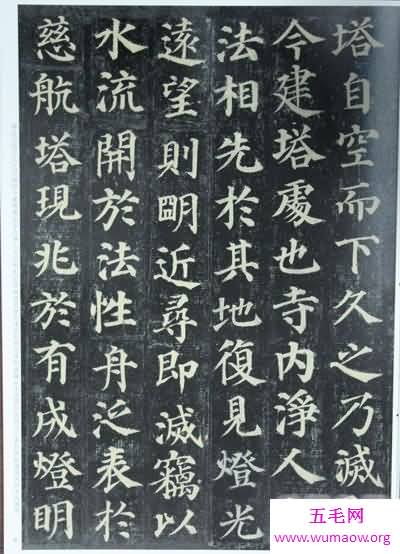 塔自空而下久之乃滅
今建塔處也寺内淨人
法相先於其地復見燈光
遠望則朙近尋即滅竊以
水流開於法性舟泛表於
慈航塔現兆於有成燈明
五毛网
www.wumaow.org